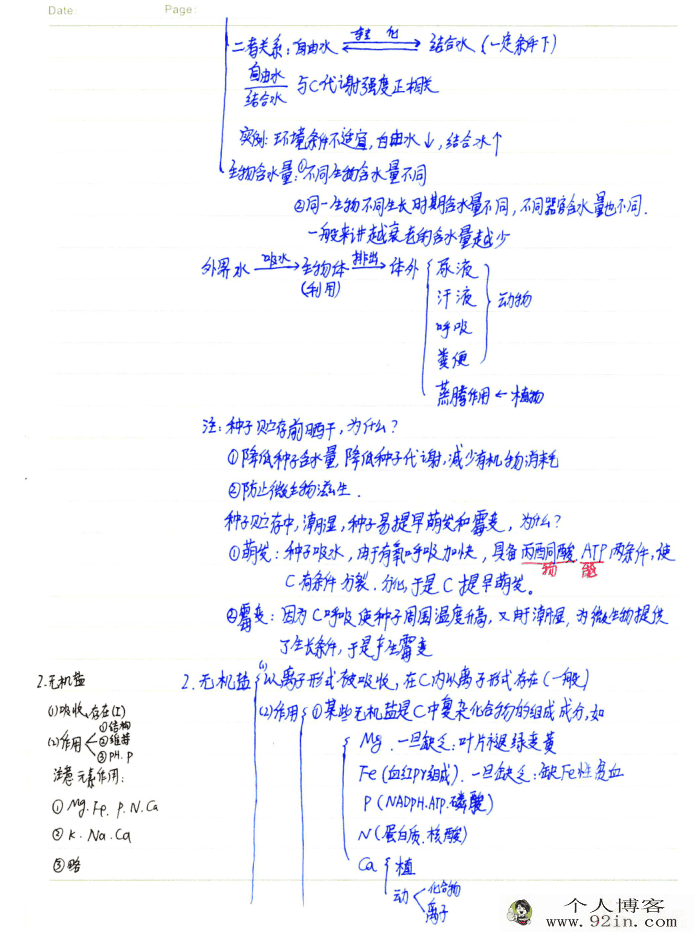 Date:
Page:
二者关系：自由水 转化 结合水（一定条件下）
自由水
结合水
与C代谢强度正相关
实例：环境条件不适宜，自由水↓，结合水↑
生物含水量：①不同生物含水量不同
②同一生物不同生长时期含水量不同，不同器官含水量也不同．
一般来讲越衰老的含水量越少
外界水 吸水→ 生物体 排出→ 体外 { 尿液
(利用)
汗液
} 动物
呼吸
粪便
蒸腾作用 ← 植物
注：种子贮存前晒干，为什么？
①降低种子含水量，降低种子代谢，减少有机物消耗
②防止微生物滋生．
种子贮存中，潮湿，种子易提早萌发和霉变，为什么？
①萌发：种子吸水，由于有氧呼吸加快，具备丙酮酸．ATP两条件，使
物 能
C有条件分裂．分化，于是C提早萌发。
②霉变：因为C呼吸使种子周围温度升高，又由于潮湿，为微生物提供
了生长条件，于是产生霉变
2.无机盐
(1)吸收、存在(I)
(2)作用
①结构
②维持
③PH.P
注意元素作用：
①Mg.Fe.P.N.Ca
②K.Na.Ca
③略
2.无机盐 { (1)以离子形式被吸收，在C内以离子形式存在（一般）
(2)作用 { ①某些无机盐是C中复杂化合物的组成成分，如
Mg．一旦缺乏：叶片褪绿变黄
Fe（血红pr组成）．一旦缺乏：缺Fe性贫血
P（NADPH.ATP.磷酸）
N（蛋白质．核酸）
Ca { 植
动 < 化合物
离子
个人博客
www.92in.com